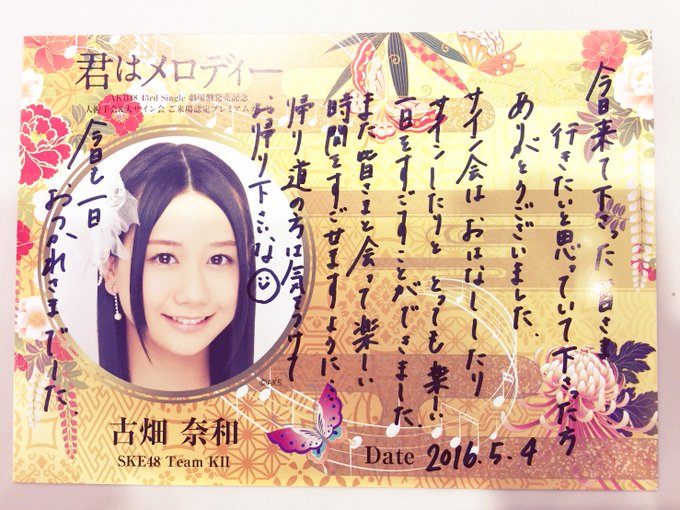 君はメロディー
AKB48 43rd Single 劇場盤発売記念
大握手会&大サイン会 ご来場認定プレミアム
今日来て下さった皆さま
行きたいと思っていて下さった方
ありがとうございました。
サイン会は おはなししたり
サインしたりと とっても楽しい
一日をすごすことができました。
また皆さまと会って楽しい
時間をすごせますように.
帰り道の方は気をつけて
お帰り下さいな
今日も一日
おつかれさまでした.
©AKS
古畑 奈和
SKE48 Team KII
Date 2016.5.4